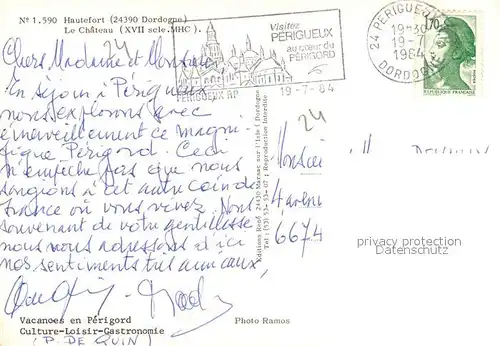 Nº 1.590 Hautefort (24390 Dordogne)
Le Château (XVII scle.MHC).
24
Chers Madame et Monsieur
En séjour à Périgueux
nous explorons avec
émerveillement ce magni-
fique Périgord. Ceci
n'empêche pas que nous
songions à cet autre coin de
France où vous vivez. Nous
souvenant de votre gentillesse
nous vous adressons d'ici
nos sentiments très amicaux,
Vacances en Périgord
Culture-Loisir-Gastronomie
(P. DE QUIN)
Photo Ramos
Editions René 24430 Marsac sur l'Isle (Dordogne
Tel : (53) 53-53-07 ; Reproduction Interdite
Visitez
PÉRIGUEUX
au cœur du
PÉRIGORD
PERIGUEUX RP
19-7-84
24 PERIGUEUX
19-30
19-7
1984
DORDOGNE
1,70
REPUBLIQUE FRANCAISE
24
Monsieur
4, avenue
6674
privacy protection
Datenschutz